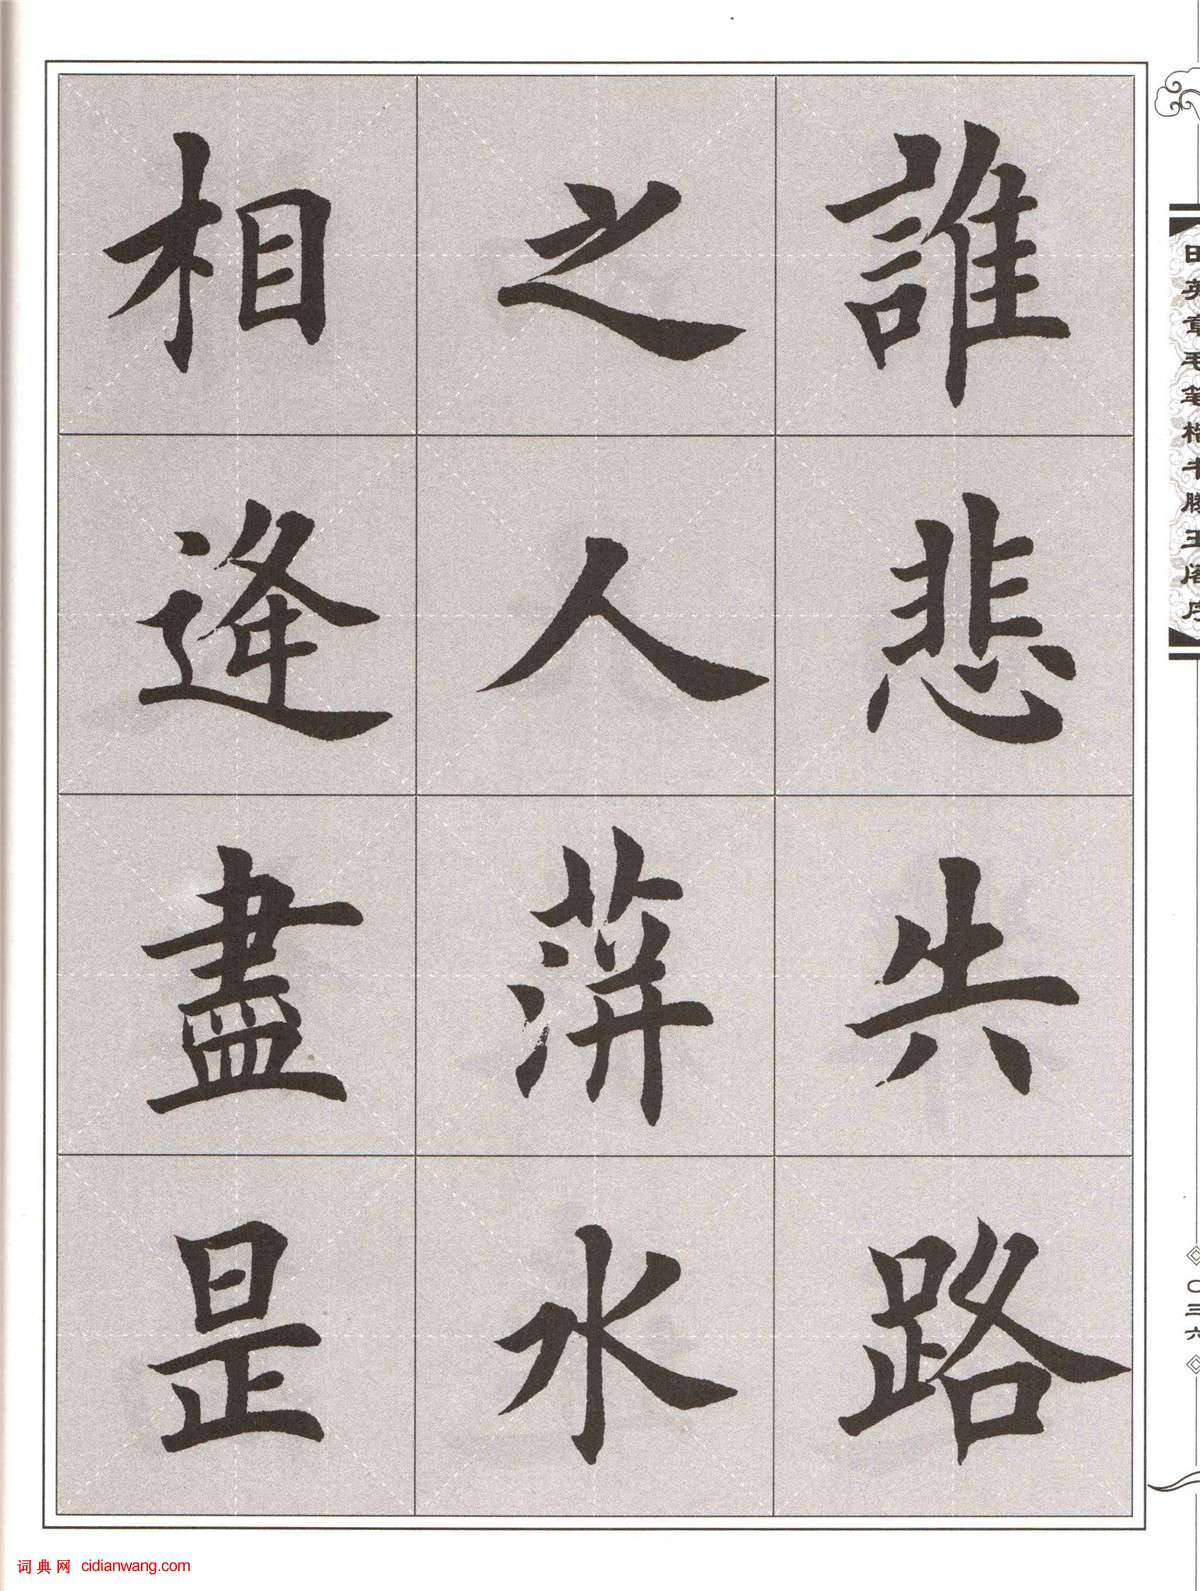 誰悲失路
之人萍水
相逢盡是
田英章毛笔楷书滕王阁序
〇三六
词典网 cidianwang.com